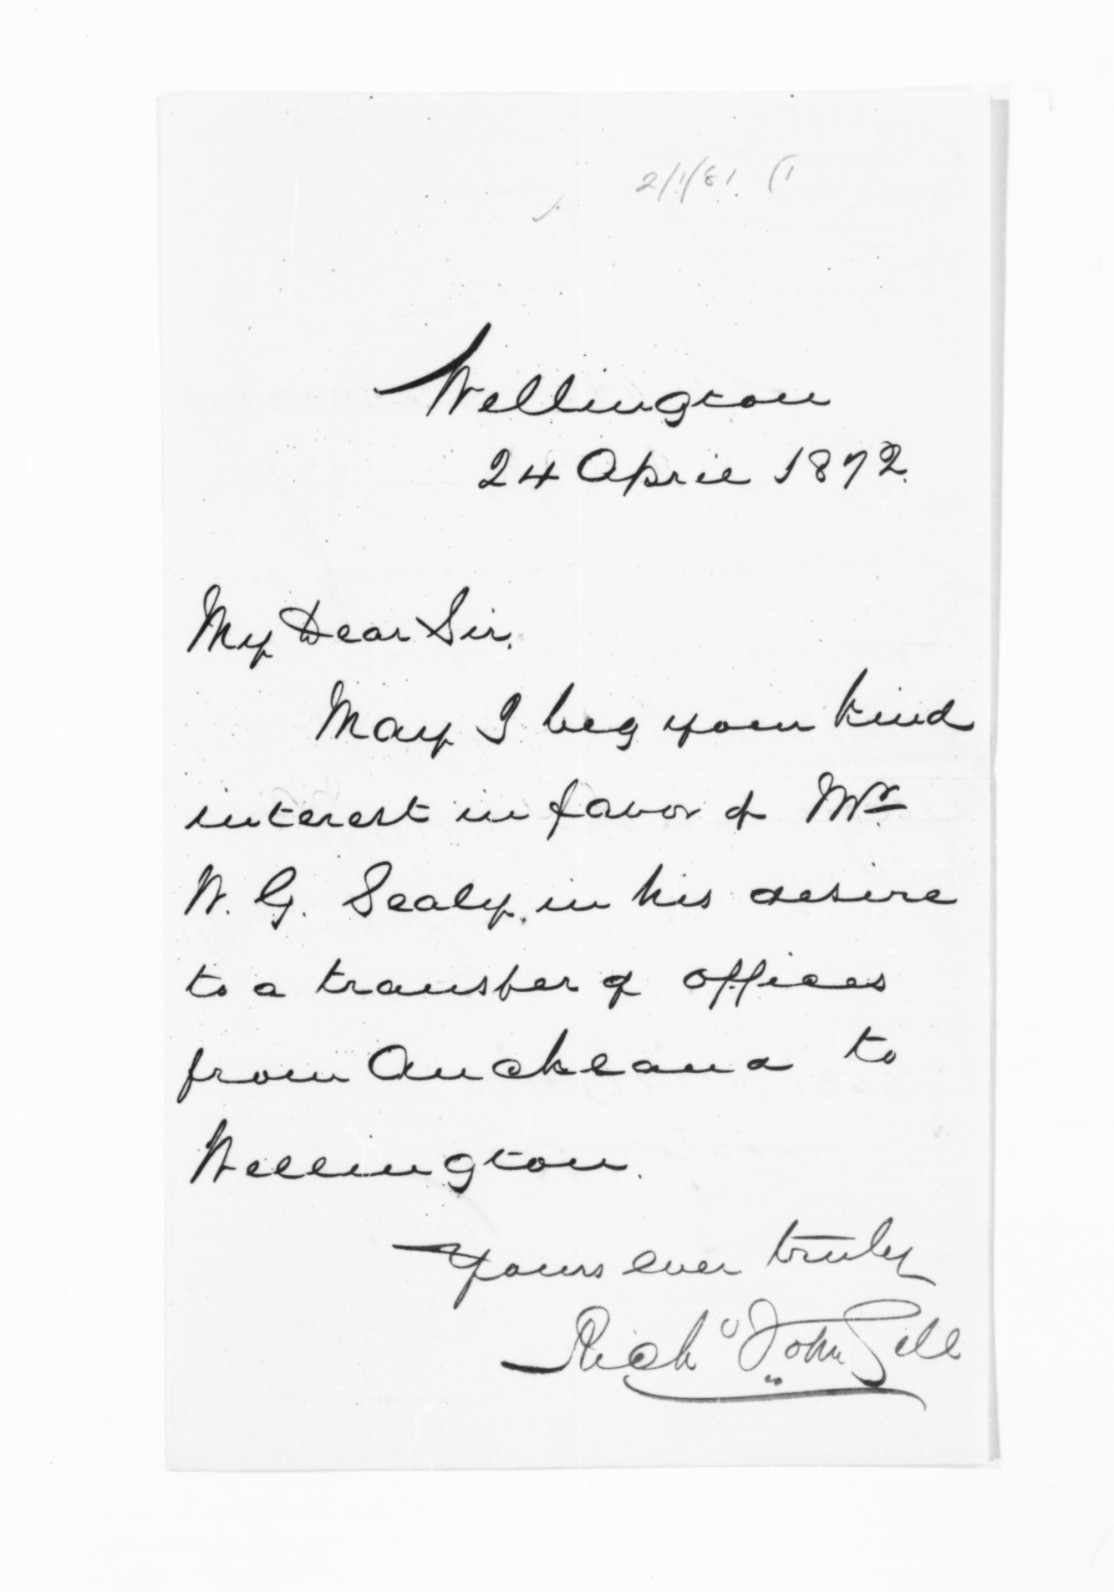 2/1/81 (1
Wellington
24 April 1872.
My Dear Sir,
May I beg your kind
interest in favor of Mr.
W. G. Sealy, in his desire
to a transfer of offices
from Auckland to
Wellington.
Yours ever truly
Richd John Gill